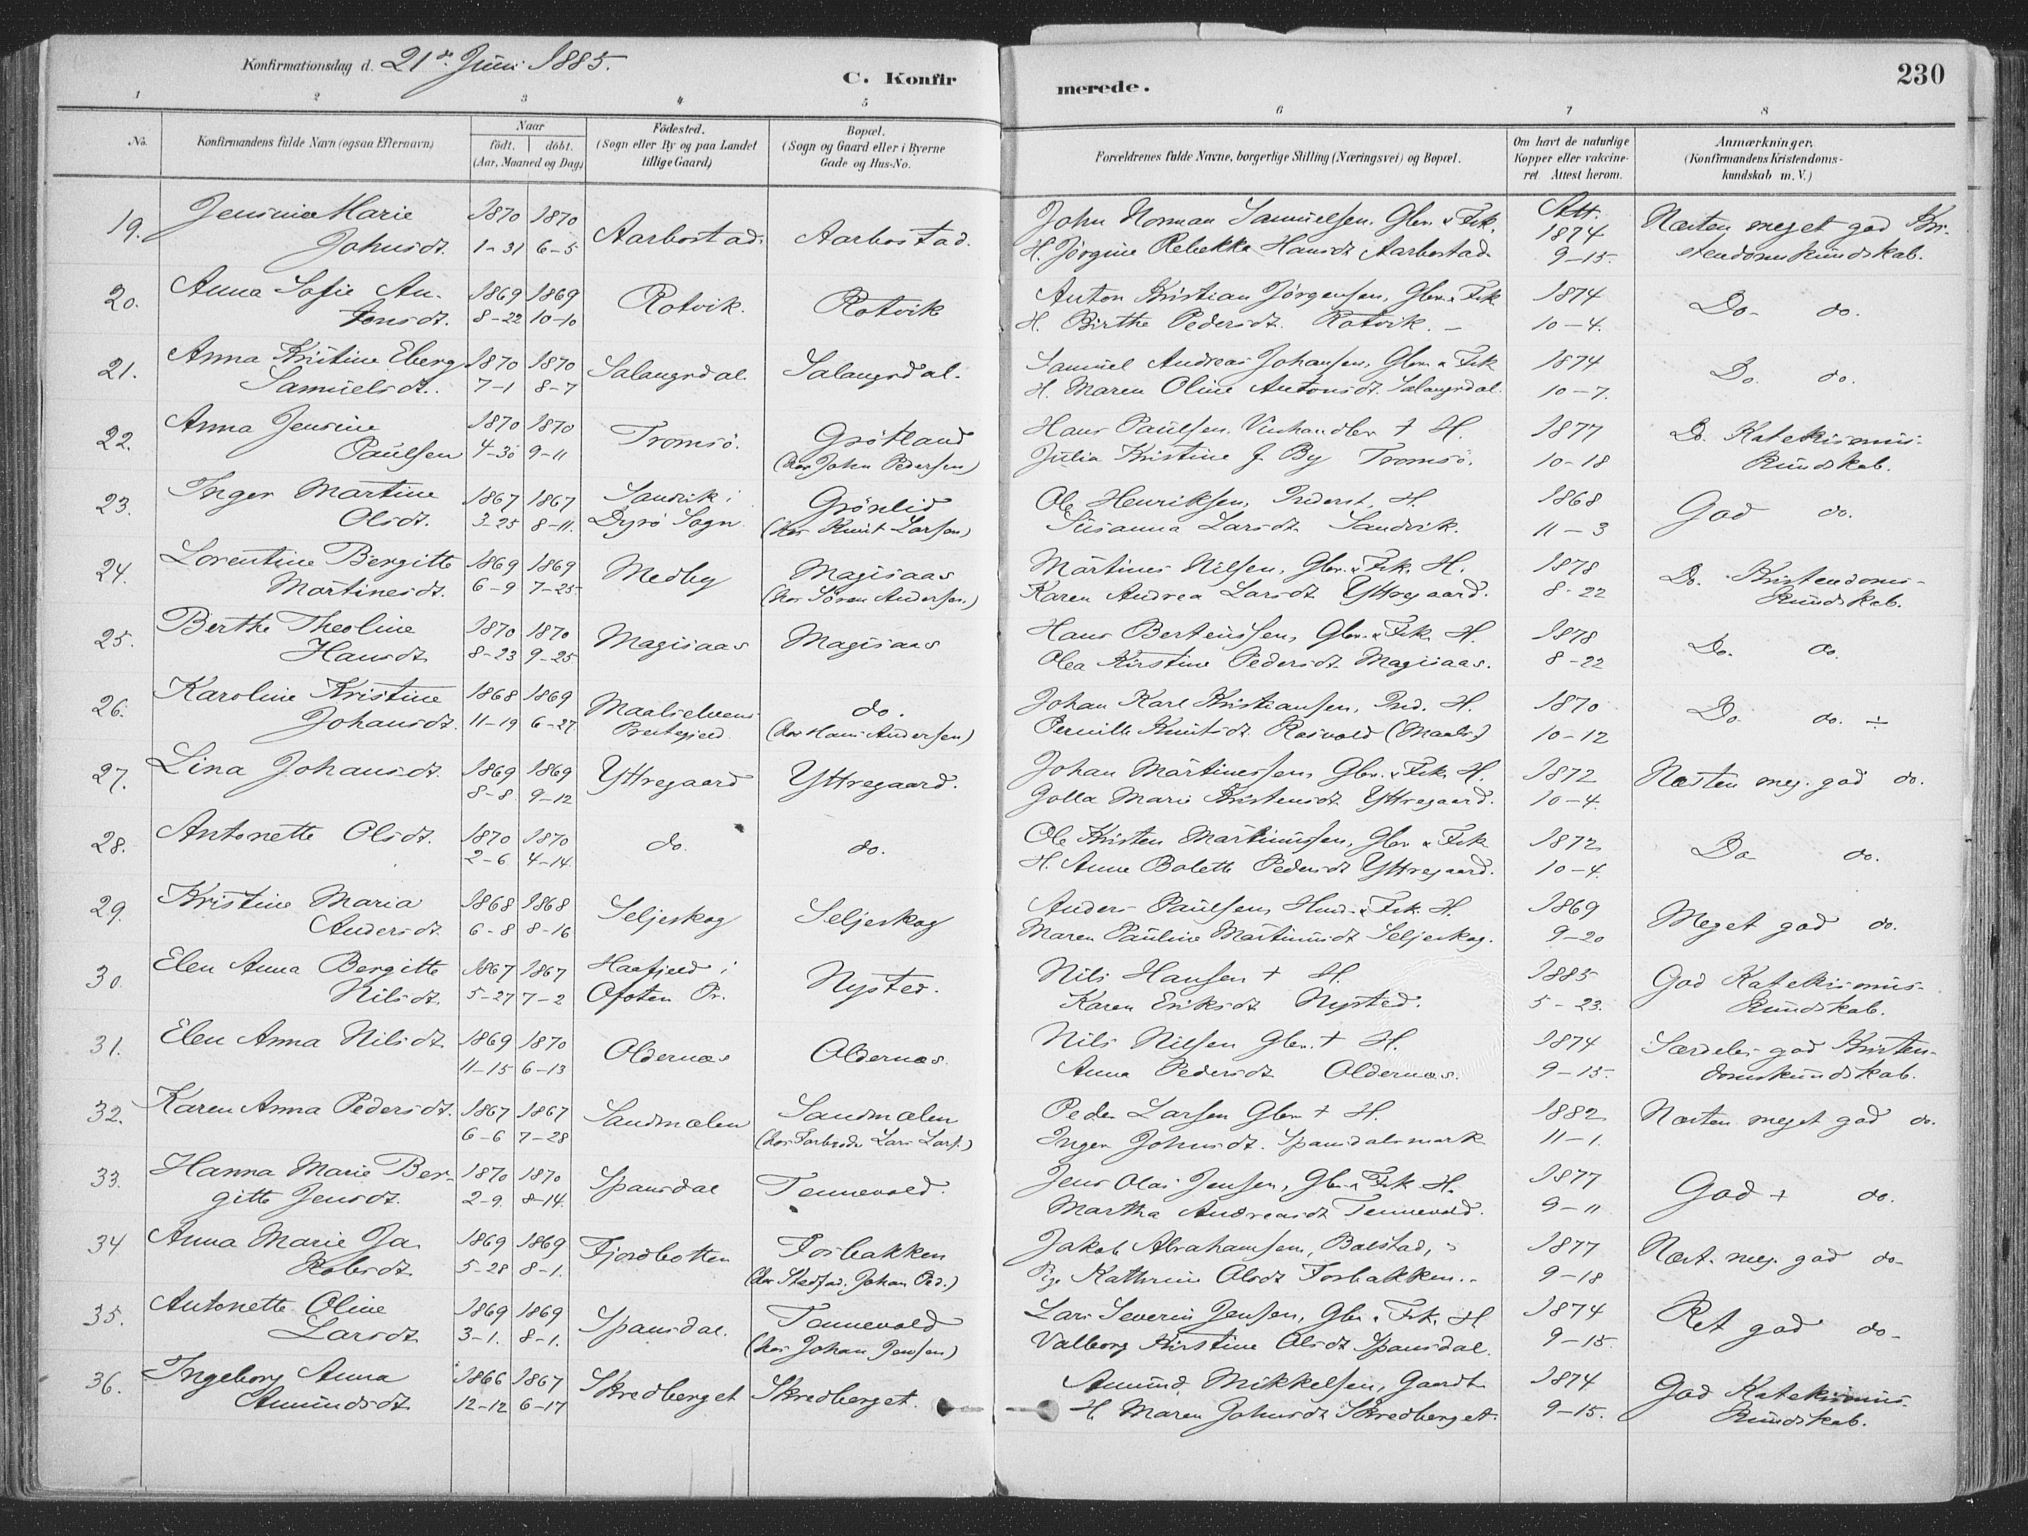 Konfirmationsdag d. 21de Juni 1885.
C. Konfirmerede.
230
1 2 3 4 5 6 7 8
No.
Konfirmandens fulde Navn (ogsaa Efternavn)
Naar
födt. döbt.
(Aar, Maaned og Dag)
Födested.
(Sogn eller By og paa Landet
tillige Gaard)
Bopæl.
(Sogn og Gaard eller i Byerne
Gade og Hus-No.
Forældrenes fulde Navne, borgerlige Stilling (Næringsvei) og Bopæl.
Om havt de naturlige
Kopper eller vakcine-
ret. Attest herom.
Anmærkninger.
(Konfirmandens Kristendoms-
kundskab m. V.)
19. Jensine Marie 1870 1870 Aarbostad. Aarbostad. John Norman Samuelsen. Gbr. & Fsk. Att. 1874 Næsten meget god Kri-
Johnsdt. 1-31 6-5 H. Jørgine Rebekka Hansdt Aarbostad. 9-15. stendomskundskab.
20. Anna Sofie An- 1869 1869 Rotvik. Rotvik Anton Kristian Jørgensen, Gbr. & Fsk 1874 Do. do.
tonsdt. 8-22 10-10 H. Birthe Pedersdt. Rotvik. 10-4.
21. Anna Kristine Eberg 1870 1870 Salangsdal. Salangsdal. Samuel Andreas Johansen, Gbr. & Fsk 1874 Do. do.
Samuelsdt. 7-1 8-7 H. Maren Oline Antonsdt. Salangsdal. 10-7.
22. Anna Jensine 1870 1870 Tromsø. Grøtland Hans Paulsen. Vinhandler + H. 1877 Do. Katekismus-
Paulsen 4-30 9-11 (hos John Pedersen) Julia Kristine f. By Tromsø. 10-18 kundskab.
23. Inger Martine 1867 1867 Sandvik i Grønlid Ole Henriksen, Inderst, H. 1868 God do.
Olsdt. 3-25 8-11. Dyrø Sogn (hos Knut Larsen) Susanna Larsdt. Sandvik. 11-3
24. Lorentine Bergitte 1869 1869 Medby Magisaas Martines Nilsen, Gbr. & Fsk. H. 1878 Do. Kristendoms-
Martinesdt. 6-9 7-25 (hos Søren Andersen.) Karen Andrea Larsdt Yttregaard. 8-22 kundskab.
25. Berthe Theoline 1870 1870 Magisaas Magisaas Hans Bertenssen, Gbr. & Fsk. H. 1878 Do. do.
Hansdt 8-23 9-25 Olea Kirstine Pedersdt Magisaas. 8-22
26. Karoline Kristine 1868 1869 Maalselvens do. Johan Karl Kristiansen, Ind. H. 1870 Do do. ÷
Johansdt. 11-19 6-27 Prestegjeld. (hos Hans Andersen) Pernille Knutsdt Rosvold (Maals.) 10-12
27. Lina Johansdt. 1869 1869 Yttregaard Yttregaard. Johan Martinessen, Gbr. & Fsk. H. 1872 Næsten meg. god do.
8-8 9-12 Golla Marie Kristensdt Yttregaard. 10-4.
28. Antonette Olsdt. 1870 1870 do. do. Ole Kristen Martinussen, Gbr & Fsk 1872 Do do.
2-6 4-14. H. Anne Bolette Pedersdt Yttregaard. 10-4.
29. Kristine Maria 1868 1868 Seljeskog Seljeskog Anders Paulsen, Husm. & Fsk. H. 1869 Meget god do.
Andersdt. 6-8 8-16 Maren Pauline Martinusdt Seljeskog. 9-20
30. Elen Anna Bergitte 1867 1867 Haafjeld i Nysted. Nils Hansen + H. 1885 God Katekismus-
Nilsdt. 5-27 7-2 Ofoten Pr. Karen Eriksdt Nysted. 5-23. kundskab.
31. Elen Anna Nilsdt 1869 1870 Oldernæs Oldernæs. Nils Nilsen Gbr. + H. 1874 Særdeles god Kristen-
11-15 6-13 Anna Pedersdt Oldernæs. 9-15. domskundskab.
32. Karen Anna Pedersdt. 1867 1867 Sandmælen Sandmælen Peder Larsen Gbr + H. 1882 Næsten meget god do.
6-6 7-28 (hos Farbrode Lars Lars.) Inger Johnsdt. Spansdalsmark 11-1.
33. Hanna Marie Ber- 1870 1870 Spansdal Tennevold. Jens Olai Jensen, Gbr. & Fsk H. 1877 God + do.
gitte Jensdt. 2-9. 8-14. Martha Andreasdt Tennevold. 9-11
34 Anna Marie Ja- 1869 1869 Fjordbotten Fosbakken Jakob Abrahamsen, Balstad, 1877 Næst. meg. god do.
kobsdt 5-28 8-1. (hos Stedfad. Johan Ped.) Pige Kathrine Olsdt Fosbakken. 9-18
35. Antonette Oline 1869 1869 Spansdal. Tennevold Lars Severin Jensen, Gbr. & Fsk. H 1874 Ret god do.
Larsdt 3-1. 8-1. (hos Johan Jensen) Valborg Kirstine Olsdt Spansdal. 9-15.
36. Ingeborg Anna 1866 1867 Skredberget Skredberget. Amund Mikkelsen, Gaardb. 1874 God Katekismus-
Amundsdt 12-12 6-17 H. Maren Johnsdt Skredberget. 9-15. kundskab.